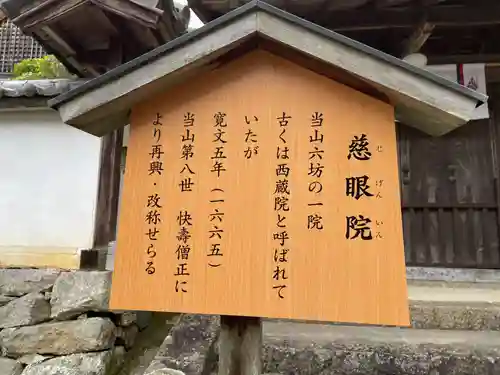 慈眼院
じげんいん
当山六坊の一院
古くは西蔵院と呼ばれて
いたが
寛文五年（一六六五）
当山第八世 快壽僧正に
より再興・改称せらる